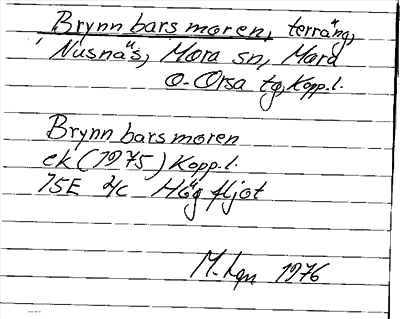 Brynnbarsmoren, terräng,
Nusnäs, Mora sn, Mora
o. Orsa tg, Kopp. l.
Brynnbarsmoren
ek (1975) Kopp. l.
15E 4c Hög fljot
M. 1976